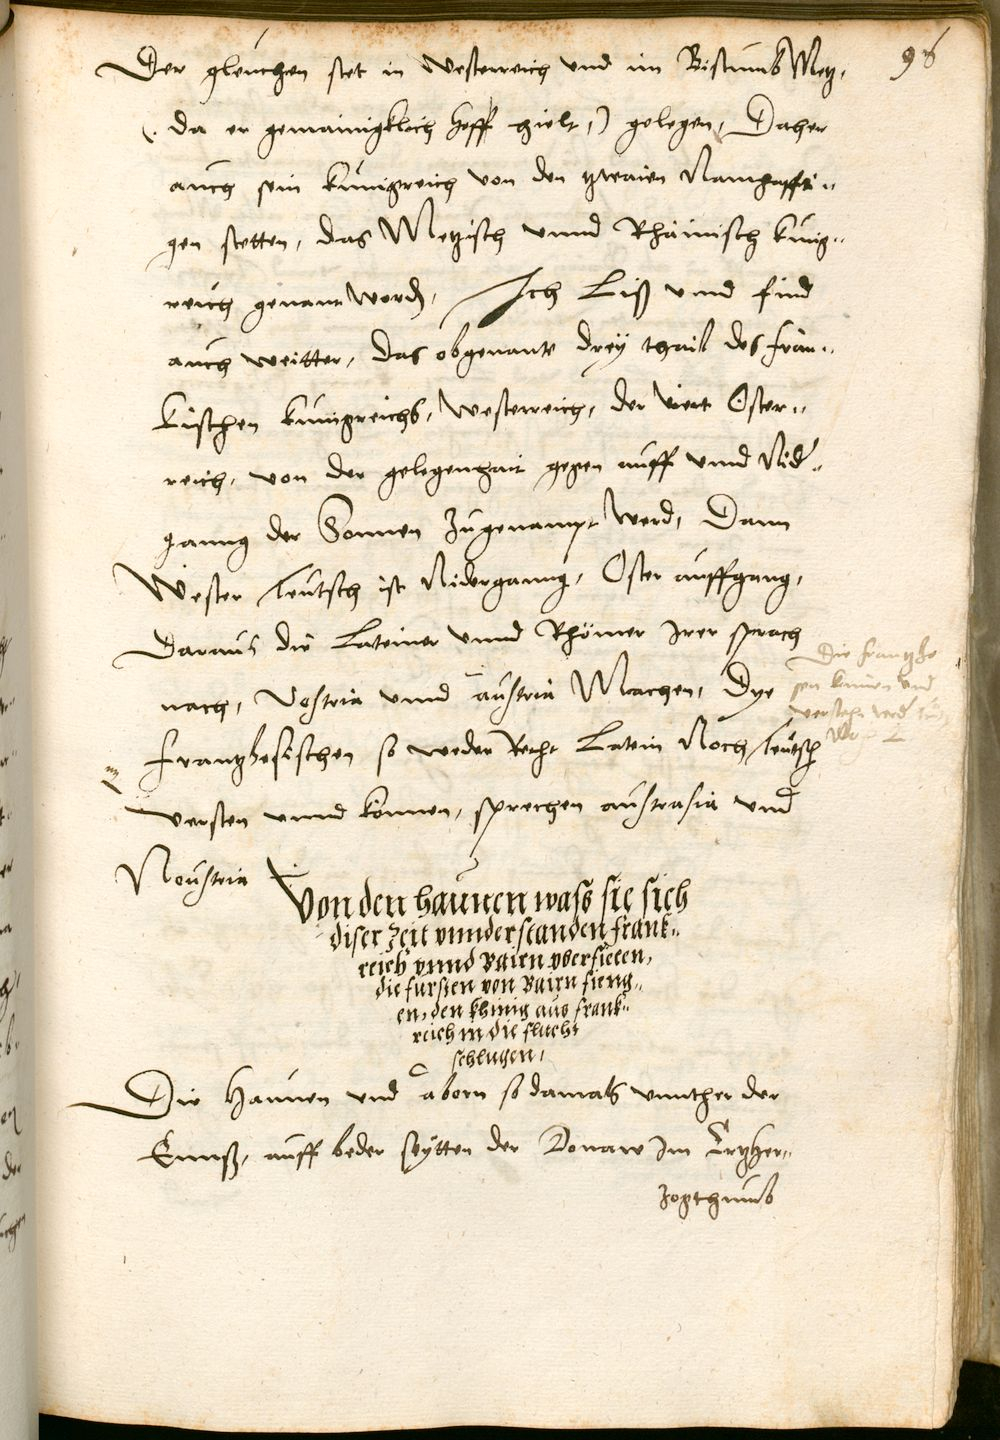 98
Der gleichen stet in Westerreich vnd im Bistumb Metz,
(. da er gemainigklich hoff hielt,) gelegen, Daher
auch sein kunigreich von den zwaien Namhaffti-
gen stetten, das Metzisch vnnd Rhäinisch kunig-
reich genant word, Ich Liß vnnd find
auch weitter, das obgenante dreÿ thail des frän-
kischen kunigreichs, Westerreich, der viert Oster-
reich, von der gelegenhait gegen auff vnnd Nid-
ganng der Sonnen Zugenampt werd, Dann
Wester teutsch ist Niderganng, Oster auffgang,
Daraus die Lateiner vnnd Rhömer irer sprach
nach, Vestria vnnd austria Machen, Dye
Frantzhesischen so weder Recht Latein Noch teutsch
versten vnnd können, sprechen austrasia vnd
Neustria
Die frantzhe
sen können vnd
versteh weder
Von den haunen wass sie sich
diser Zeit vnnderstanden frank-
reich vnnd Bairn vberfielen,
die fursten von Bairn fieng-
en, den khinig aus frank-
reich in die flucht
schlugen,
Die Haunen vnd abern so damals vnnther der
Ennß, auff beder seÿtten der Donaw Im Ertzher-
zogthumb